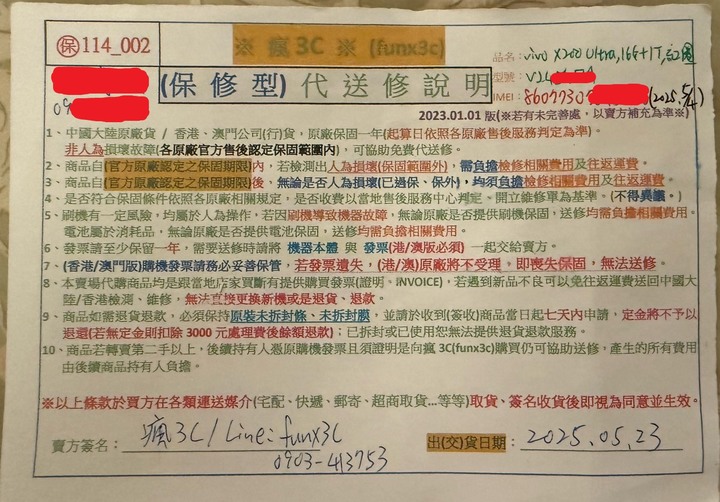 ㊩114_002
※ 瘋 3C ※ (funx3c)
品名: vivo X200 Ultra, 16G+1T, 紅
(保修型) 代送修說明
型號: V24
09
IMEI: 8607730 (2025.5/4)
2023.01.01 版(※若有未完善處，以賣方補充為準※)
1、中國大陸原廠貨 / 香港、澳門公司(行)貨，原廠保固一年(起算日依照各原廠售後服務判定為準)。
非人為損壞故障(各原廠官方售後認定保固範圍內)，可協助免費代送修。
2、商品自(官方原廠認定之保固期限)內，若檢測出人為損壞(保固範圍外)，需負擔檢修相關費用及往返運費。
3、商品自(官方原廠認定之保固期限)後，無論是否人為損壞(已過保、保外)，均須負擔檢修相關費用及往返運費。
4、是否符合保固條件依各原廠相關規定，是否收費以當地售後服務中心判定、開立維修單為基準。(不得異議。)
5、刷機有一定風險，均屬於人為操作，若因刷機導致機器故障，無論原廠是否提供刷機保固，送修均需負擔相關費用。
電池屬於消耗品，無論原廠是否提供電池保固，送修均需負擔相關費用。
6、發票請至少保留一年，需要送修時請將 機器本體 與 發票(港/澳版必須) 一起交給賣方。
7、(香港/澳門版)購機發票請務必妥善保管，若發票遺失，(港/澳)原廠將不受理，即喪失保固，無法送修。
8、本賣場代購商品均是跟當地店家買斷有提供購買發票(證明。iNVOiCE)，若遇到新品不良可以免往返運費送回中國大
陸/香港檢測、維修，無法直接更換新機或是退貨、退款。
9、商品如需退貨退款，必須保持原裝未拆封條、未拆封膜，並請於收到(簽收)商品當日起七天內申請，定金將不予以
退還(若無定金則扣除 3000 元處理費後餘額退款)；已拆封或已使用恕無法提供退貨退款服務。
10、商品若轉賣第二手以上，後續持有人憑原購機發票且須證明是向瘋 3C(funx3c)購買仍可協助送修，產生的所有費用
由後續商品持有人負擔。
※以上條款於買方在各類運送媒介(宅配、快遞、郵寄、超商取貨…等等)取貨、簽名收貨後即視為同意並生效。
賣方簽名： 瘋3C/Line: funx3C 出(交)貨日期： 2025.05.23
0903-413753